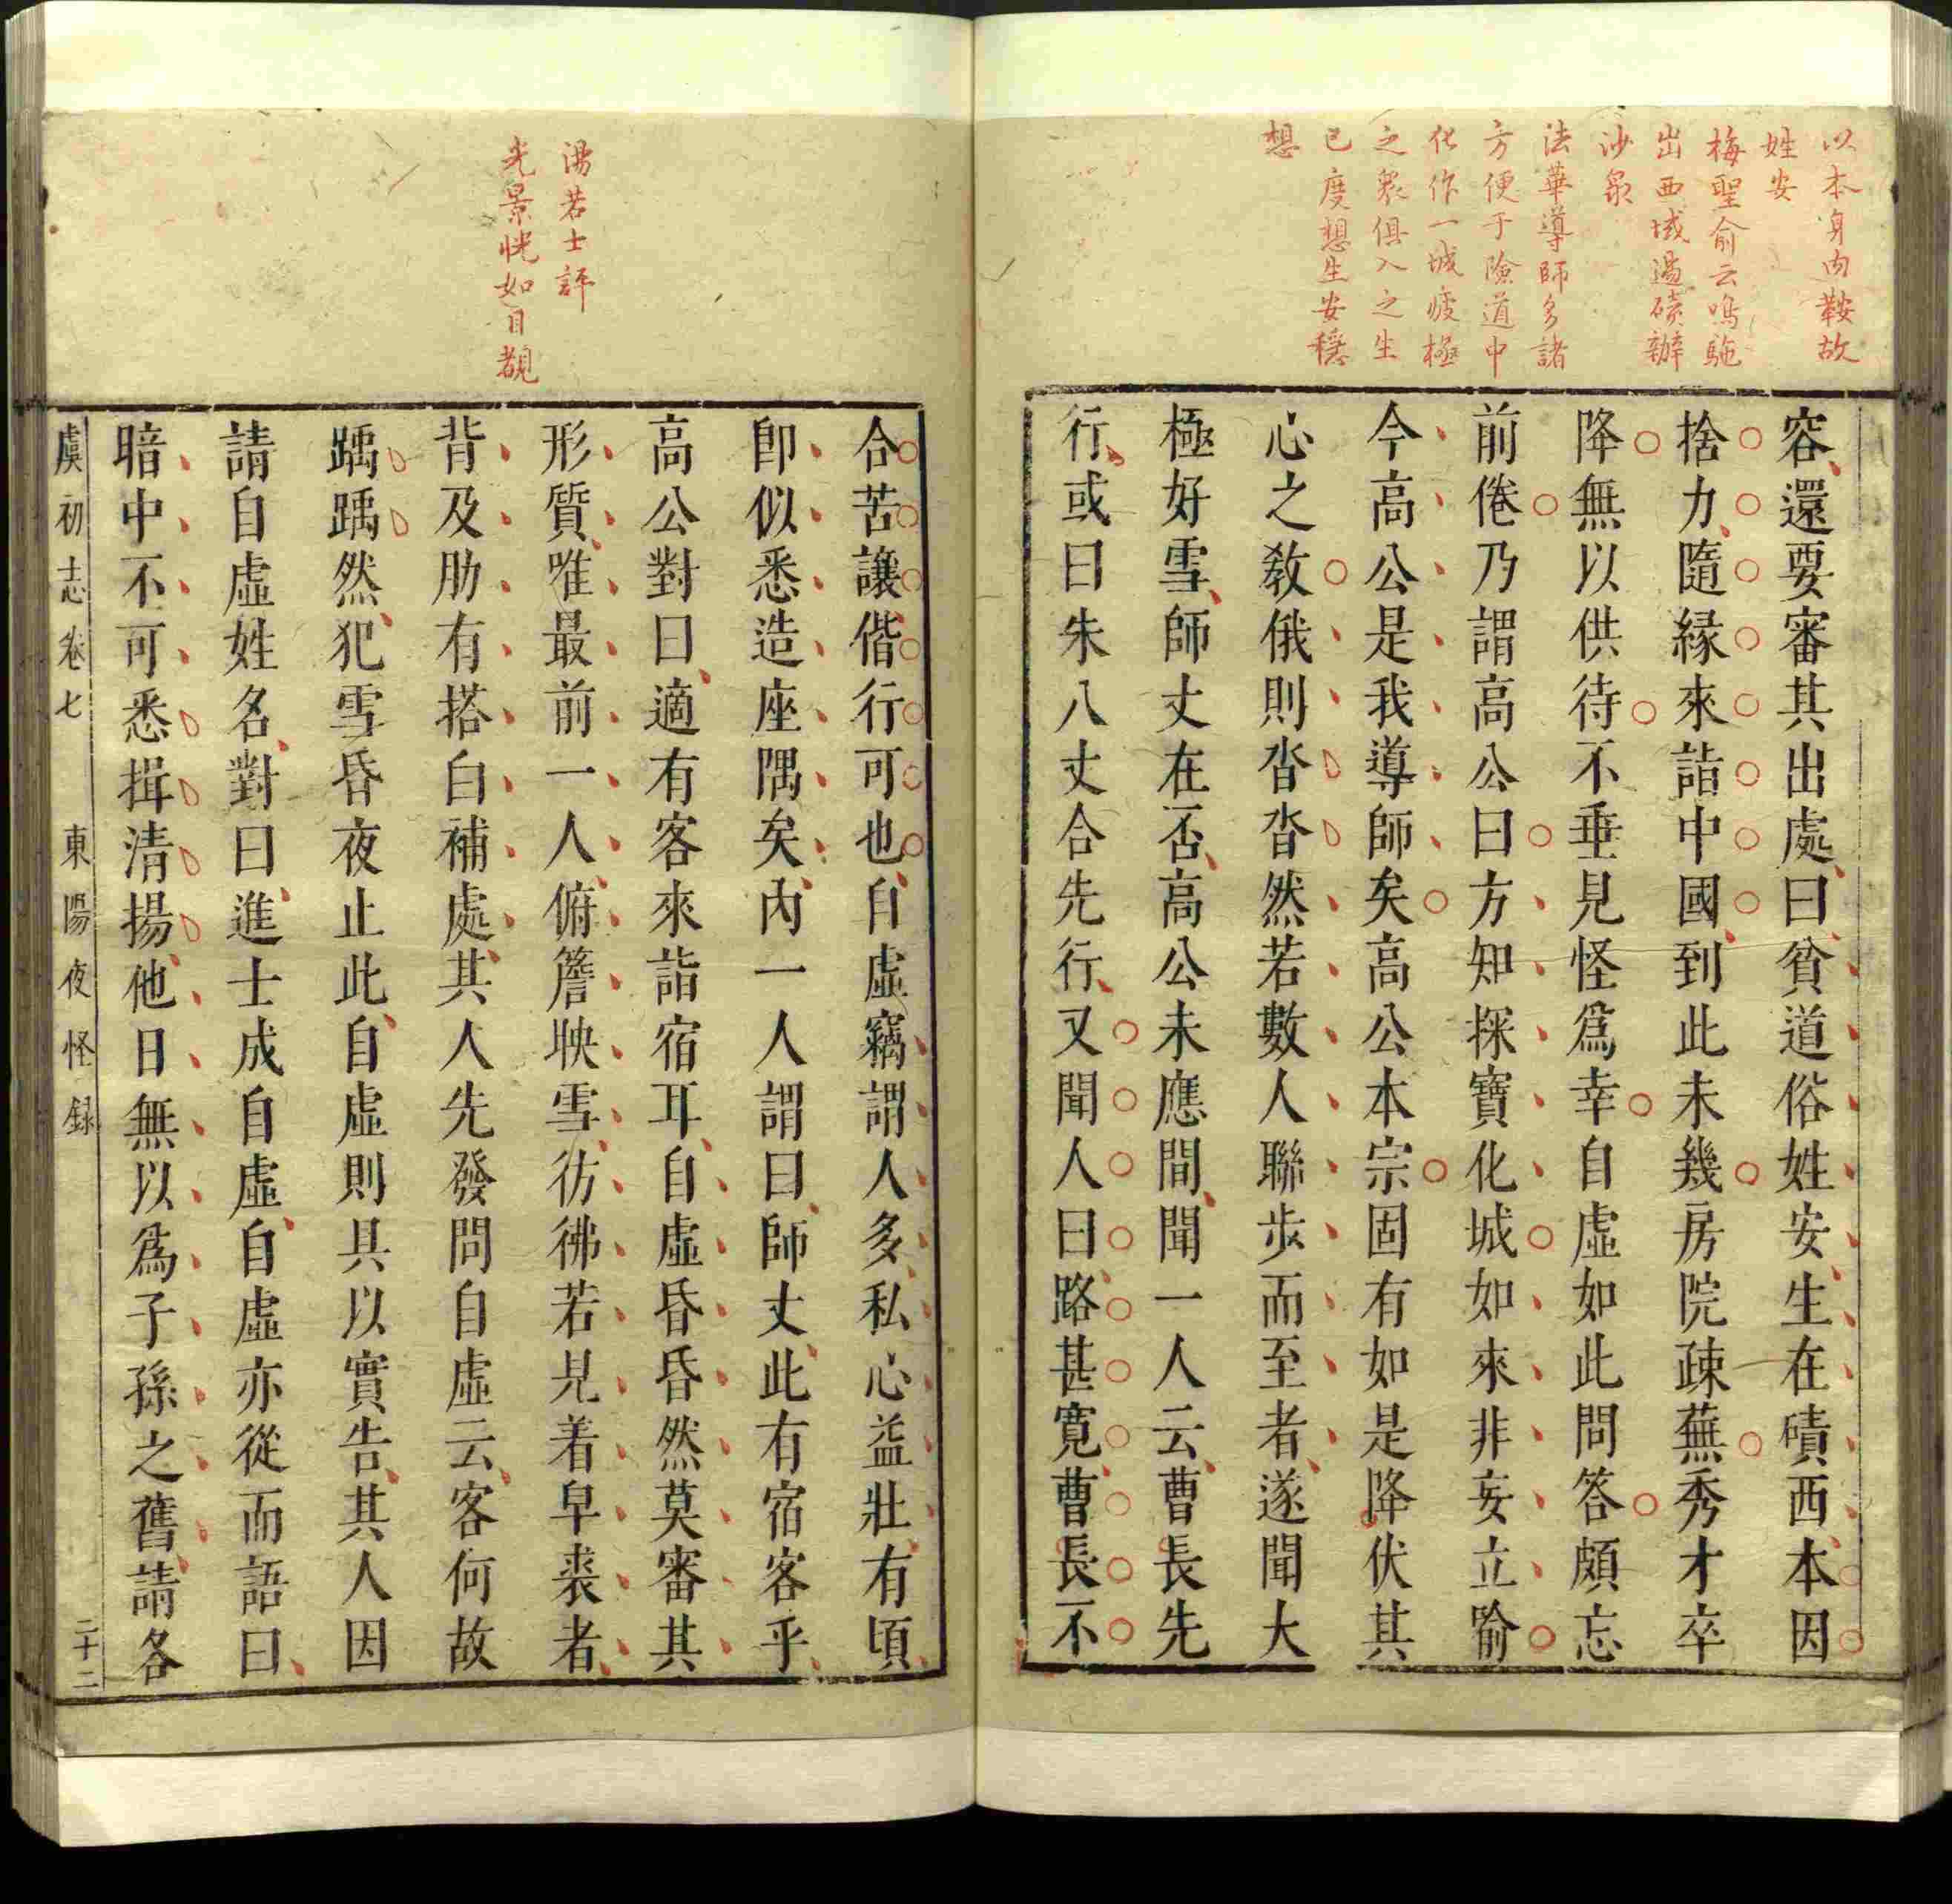 以本身肉鞍故
姓安
梅聖俞云鳴駞
出西域過磧辦
沙泉
法華導師多諸
方便于險道中
化作一城疲極
之衆俱入之生
已度想生安穩
想
容還要審其出處曰貧道俗姓安生在磧西本因
捨力隨緣來詣中國到此未幾房院疎蕪秀才卒
降無以供待不垂見怪爲幸自虛如此問答頗忘
前倦乃謂高公曰方知探寶化城如來非妄立喻
今高公是我導師矣高公本宗固有如是降伏其
心之敎俄則沓沓然若數人聯步而至者遂聞大
極好雪師丈在否高公未應間聞一人云曹長先
行或曰朱八丈合先行又聞人曰路甚寬曹長不
湯若士評
光景恍如目覩
合苦讓偕行可也自虛竊謂人多私心益壯有頃
卽似悉造座隅矣內一人謂曰師丈此有宿客乎
高公對曰適有客來詣宿耳自虛昏昏然莫審其
形質唯最前一人俯簷映雪彷彿若見着皁裘者
背及肋有搭白補處其人先發問自虛云客何故
踽踽然犯雪昏夜止此自虛則具以實告其人因
請自虛姓名對曰進士成自虛自虛亦從而語曰
暗中不可悉揖清揚他日無以爲子孫之舊請各
虞初志卷七 東陽夜怪録 二十二